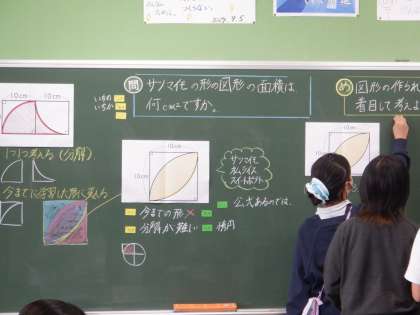 問 サツマイモの形の図形の面積は
何cm²ですか。
め 図形の作られ
着目して考えよ
10cm
10cm
10cm
10cm
10cm
1つ1つ考える(分解)
今までに学習した形に変える
サツマイモ
オムライス
スイートポテト
公式あるのでは、
今までの形×
分解が難しい